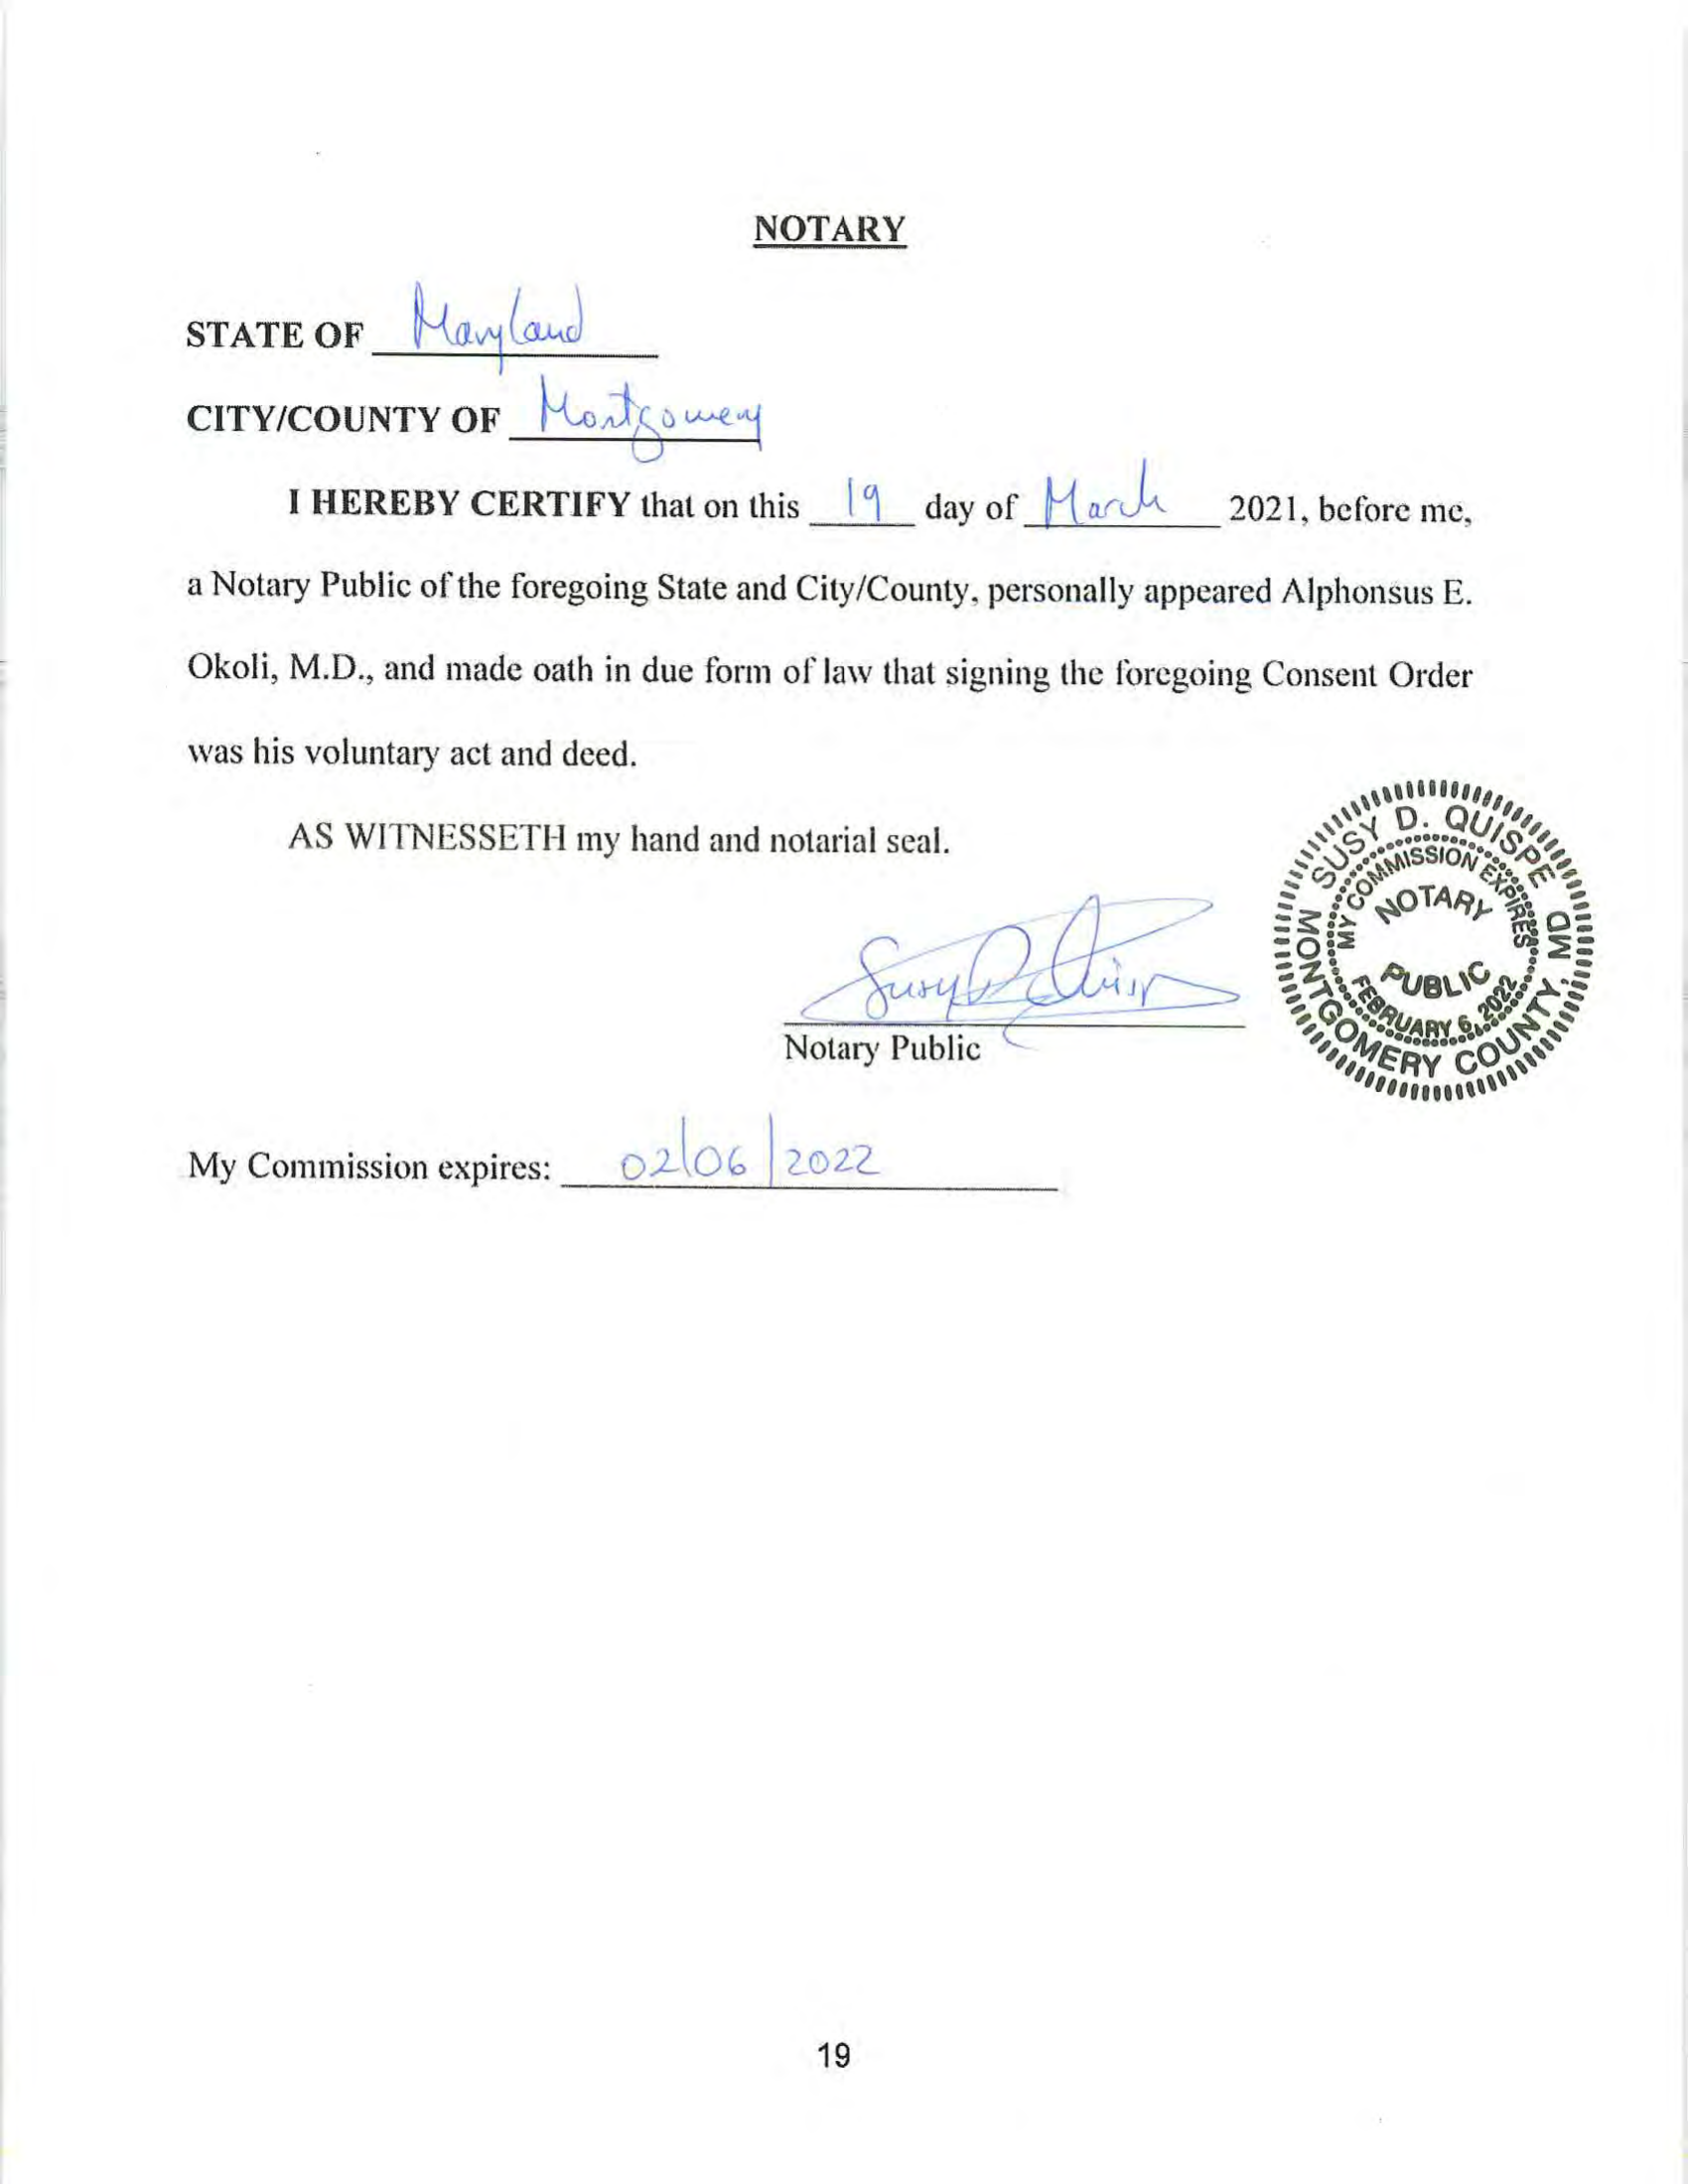 NOTARY
STATE OF Maryland
CITY/COUNTY OF Montgomery
I HEREBY CERTIFY that on this 19 day of March 2021, before me,
a Notary Public of the foregoing State and City/County, personally appeared Alphonsus E.
Okoli, M.D., and made oath in due form of law that signing the foregoing Consent Order
was his voluntary act and deed.
AS WITNESSETH my hand and notarial seal.
SUSY D. QUISPE
MY COMMISSION EXPIRES
NOTARY
PUBLIC
FEBRUARY 6, 2022
MONTGOMERY COUNTY, MD
Susy D Quispe
Notary Public
My Commission expires: 02/06/2022
19